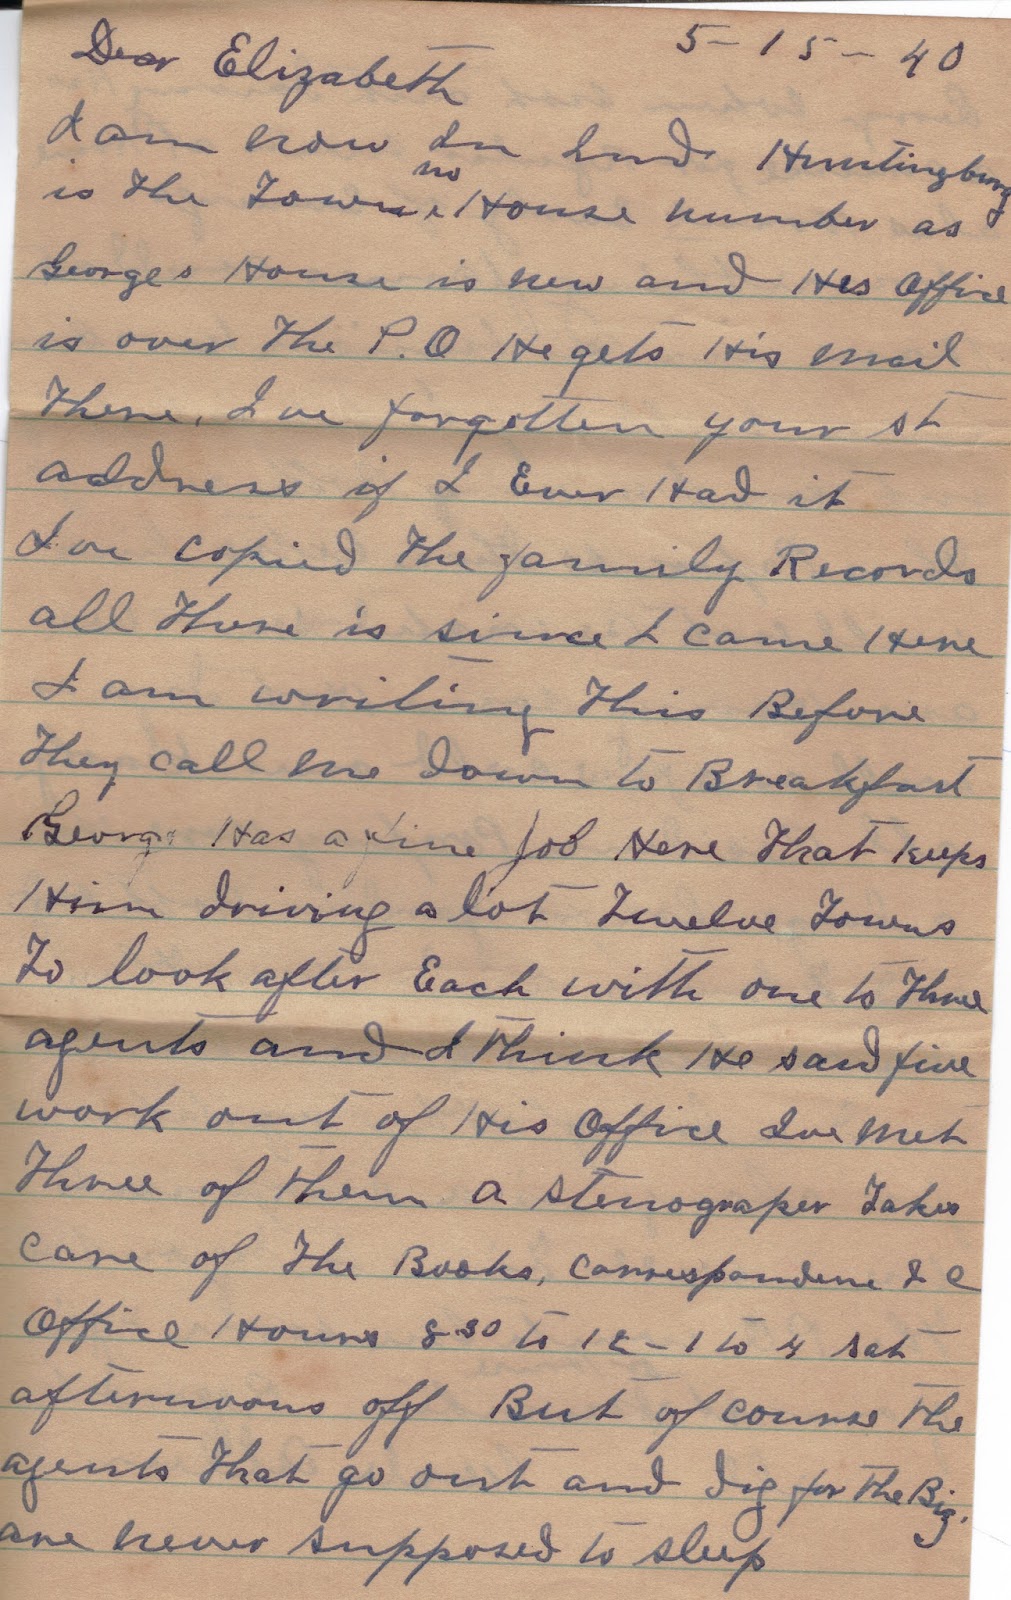 Dear Elizabeth 5-15-40
I am now In Ind. Huntingburg
is the Town no House number as
Georges House is new and His Office
is over the P.O He gets His mail
There. Ive forgotten your st
address if I Ever Had it
Ive copied the family Records
all there is since I came Here
I am writing This Before
They call me down to Breakfast
George Has a fine job Here That keeps
Him driving a lot Twelve Towns
To look after Each with one to Three
agents and I think He said five
work out of His Office Ive met
Three of Them a stenograper Takes
care of The Books, correspondene & c
Office Hours 8 30 to 12 - 1 to 4 sat
afternoons off But of course the
agents That go out and dig for the Biz.
are never supposed to sleep